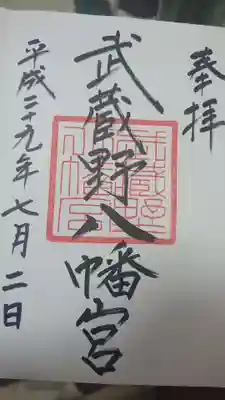 奉拝
武蔵野八幡宮
平成二十九年七月二日